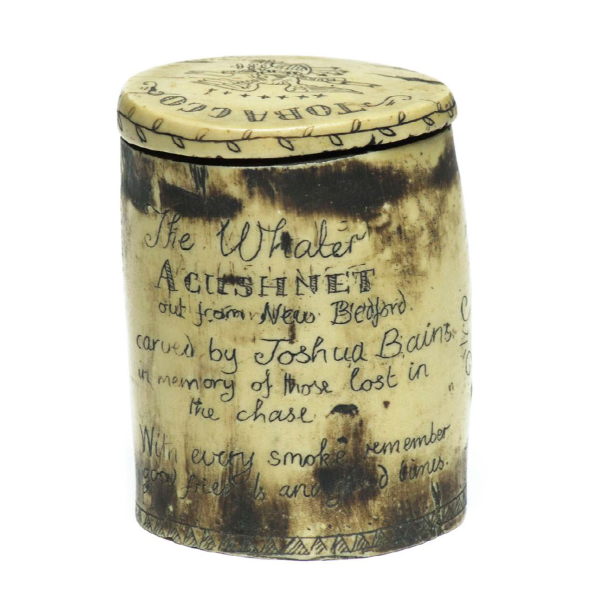 TOBACCO
The Whaler
ACUSHNET
out from New Bedford
carved by Joshua Bains.
in memory of those lost in
the chase
With every smoke remember
good friends and good times.